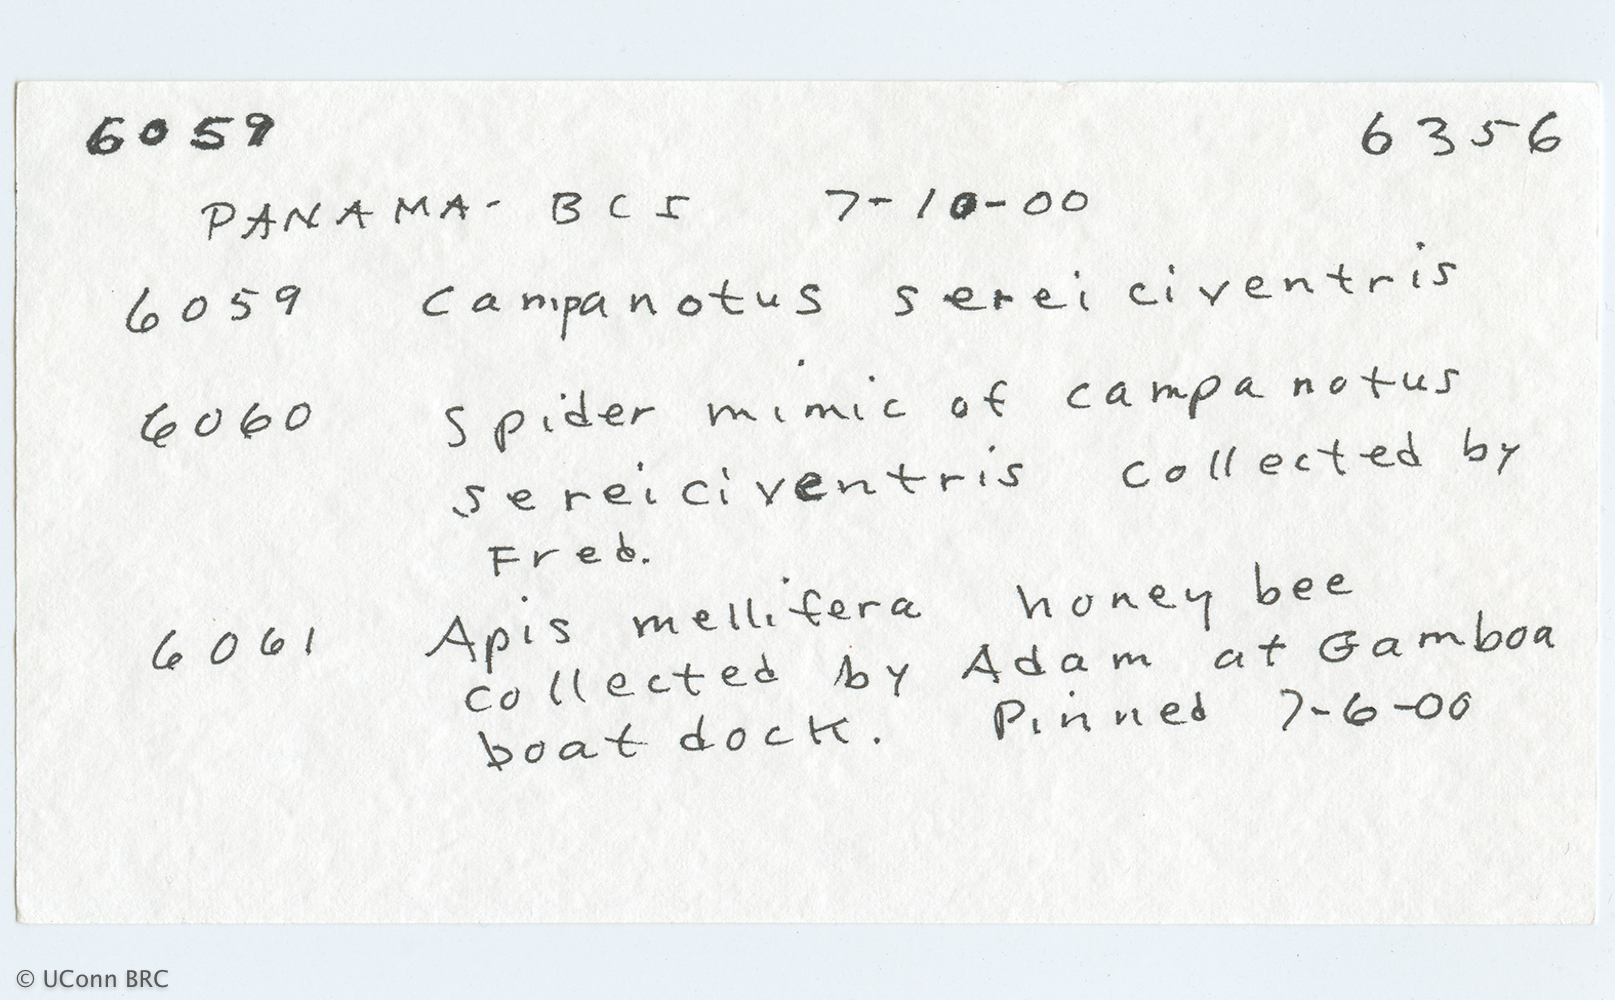 6059 6356
PANAMA- BCI 7-10-00
6059 Campanotus sereiciventris
6060 Spider mimic of campanotus
sereiciventris collected by
Fred.
6061 Apis mellifera honey bee
collected by Adam at Gamboa
boat dock. Pinned 7-6-00
© UConn BRC